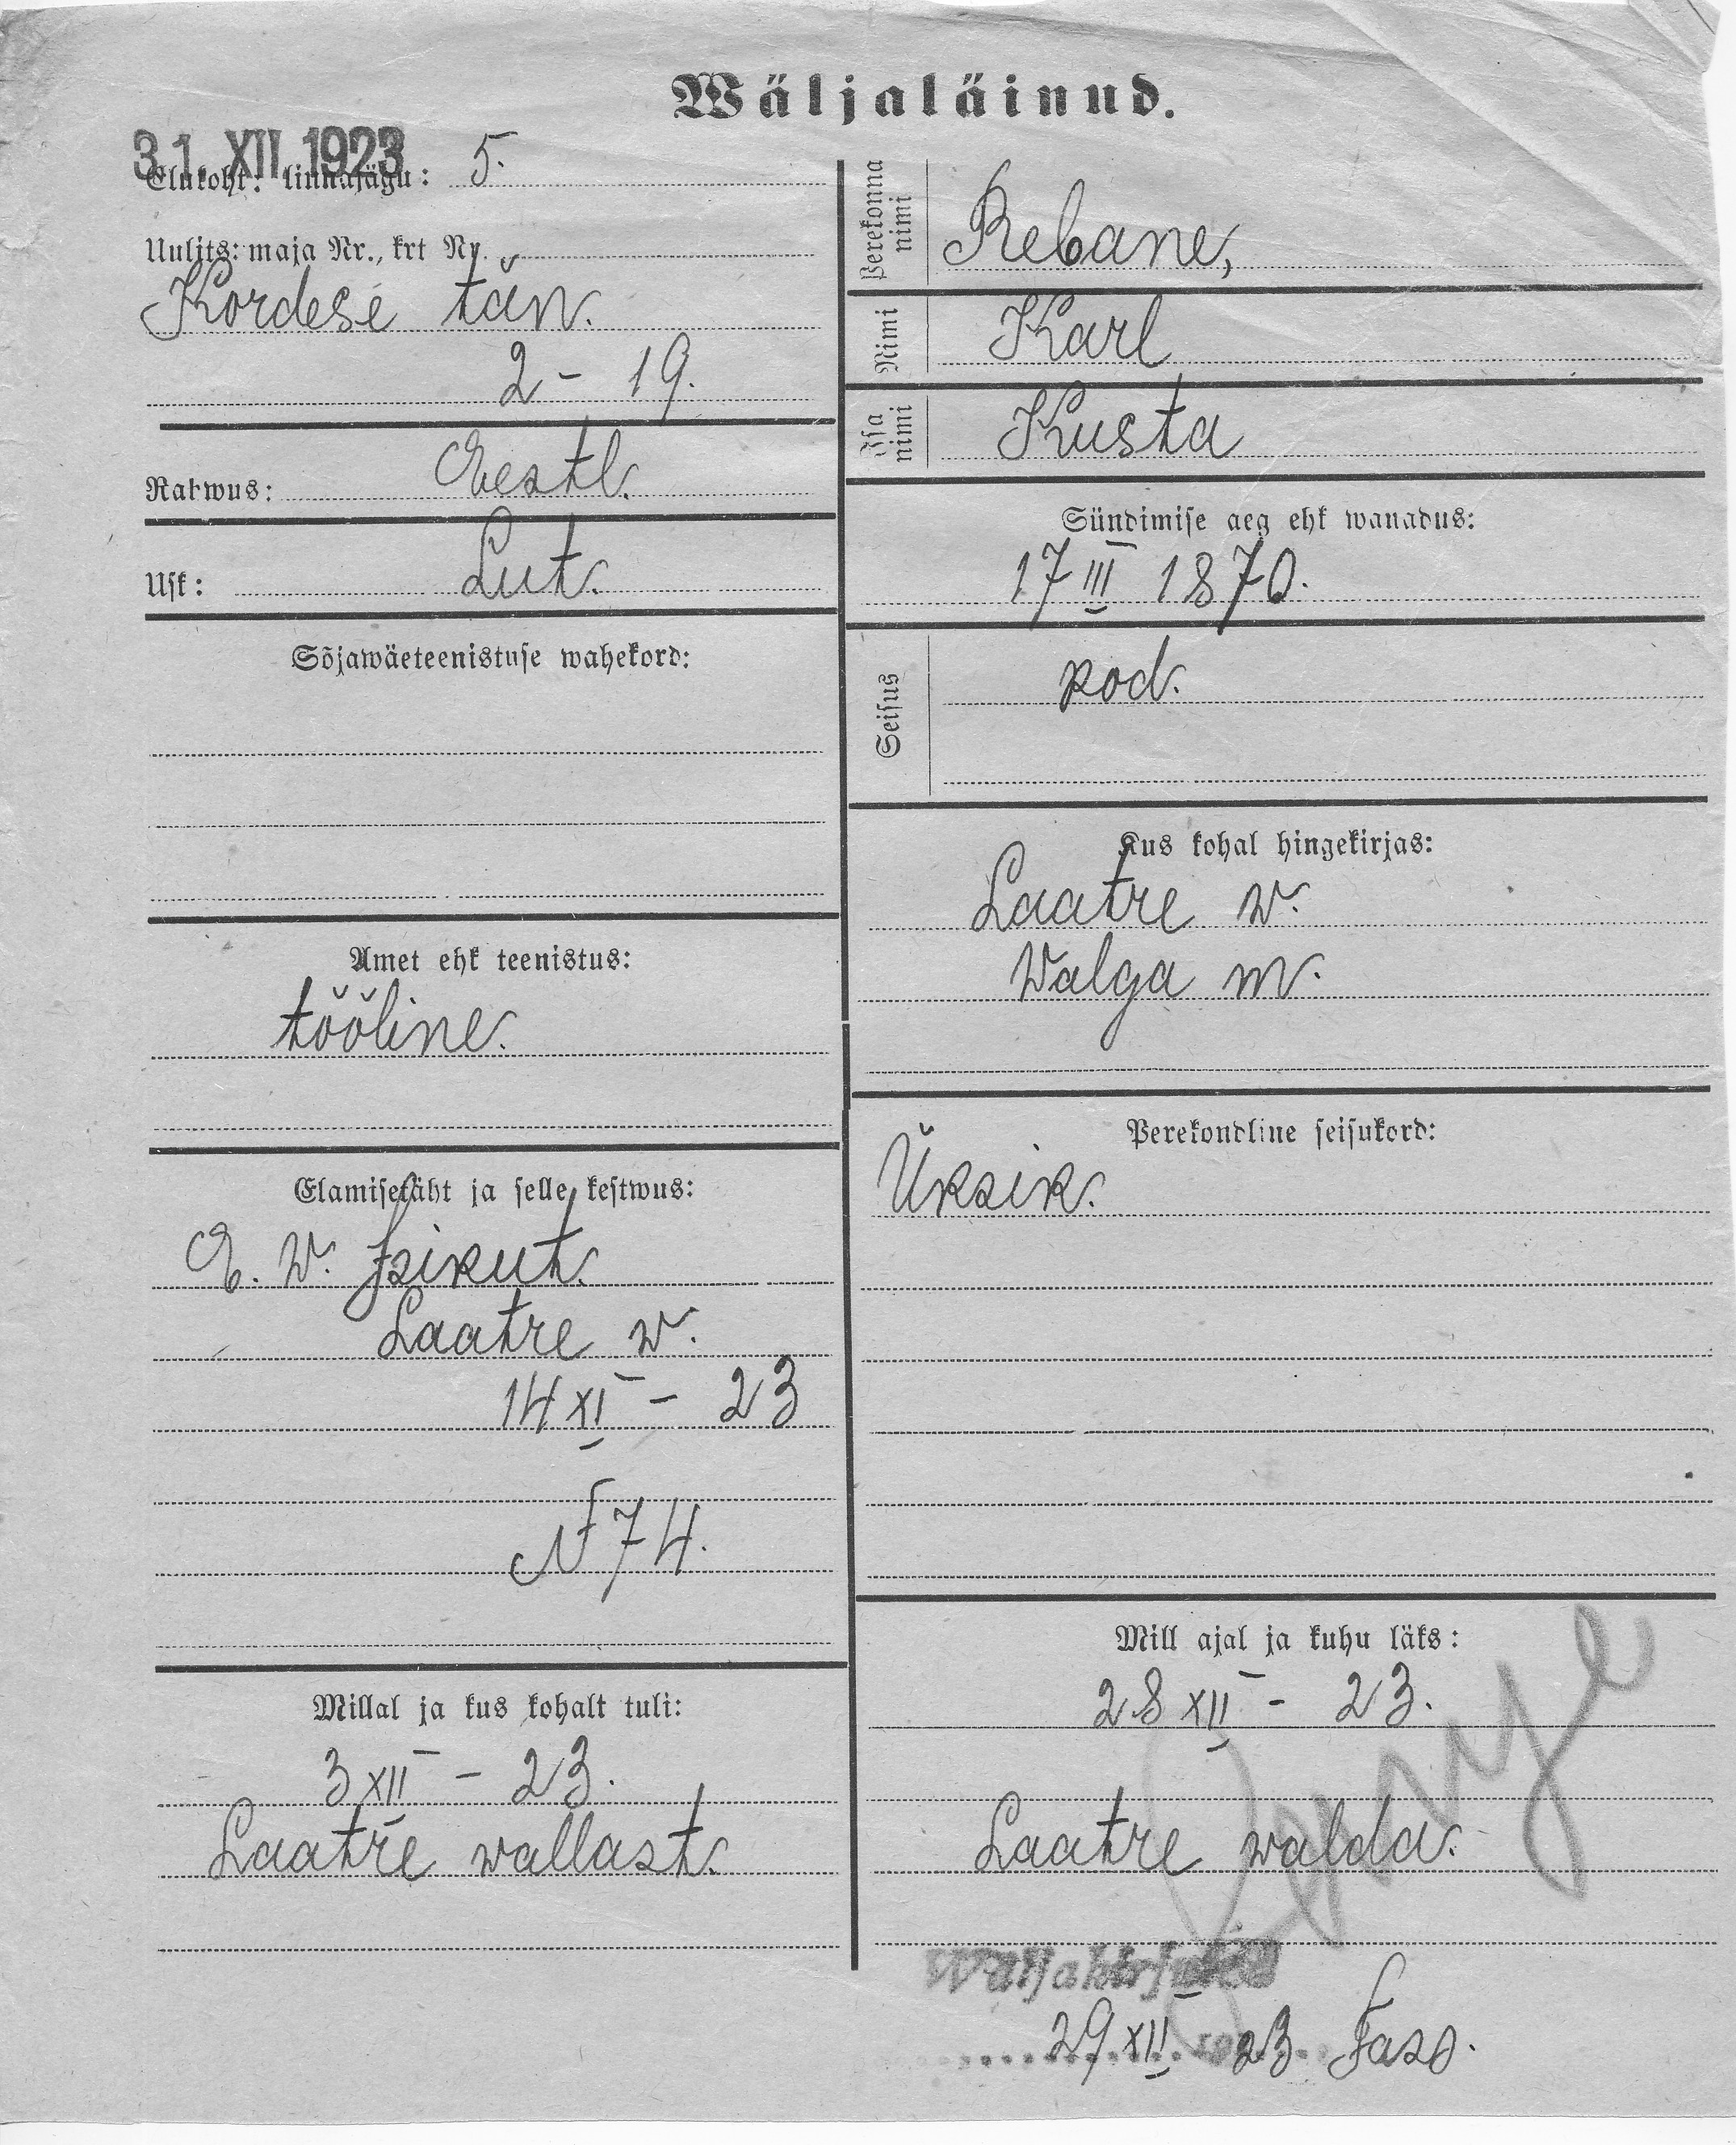 Wäljaläinud.
31. XII 1923
Elukoht: linnajagu: 5.
Uulits: maja Nr., krt Nr.
Kordese tän.
2 - 19.
Rahwus: Eestl.
Usk: Lut.
Sõjawäeteenistuse wahekord:
Amet ehk teenistus:
tööline.
Elamisetäht ja selle kestwus:
E. W. Isikut.
Laatre w.
14 XI - 23
N 74.
Millal ja kus kohalt tuli:
3 XII - 23.
Laatre wallast.
Perekonna nimi Rebane,
Nimi Karl
Isa nimi Kusta
Sündimise aeg ehk wanadus:
17 III 1870.
Seisus kod.
Kus kohal hingekirjas:
Laatre w.
Walga m.
Perekondline seisukord:
Üksik.
Mill ajal ja kuhu läks:
28 XII - 23.
Laatre walda.
Wäljakirjutud
29 XII 23